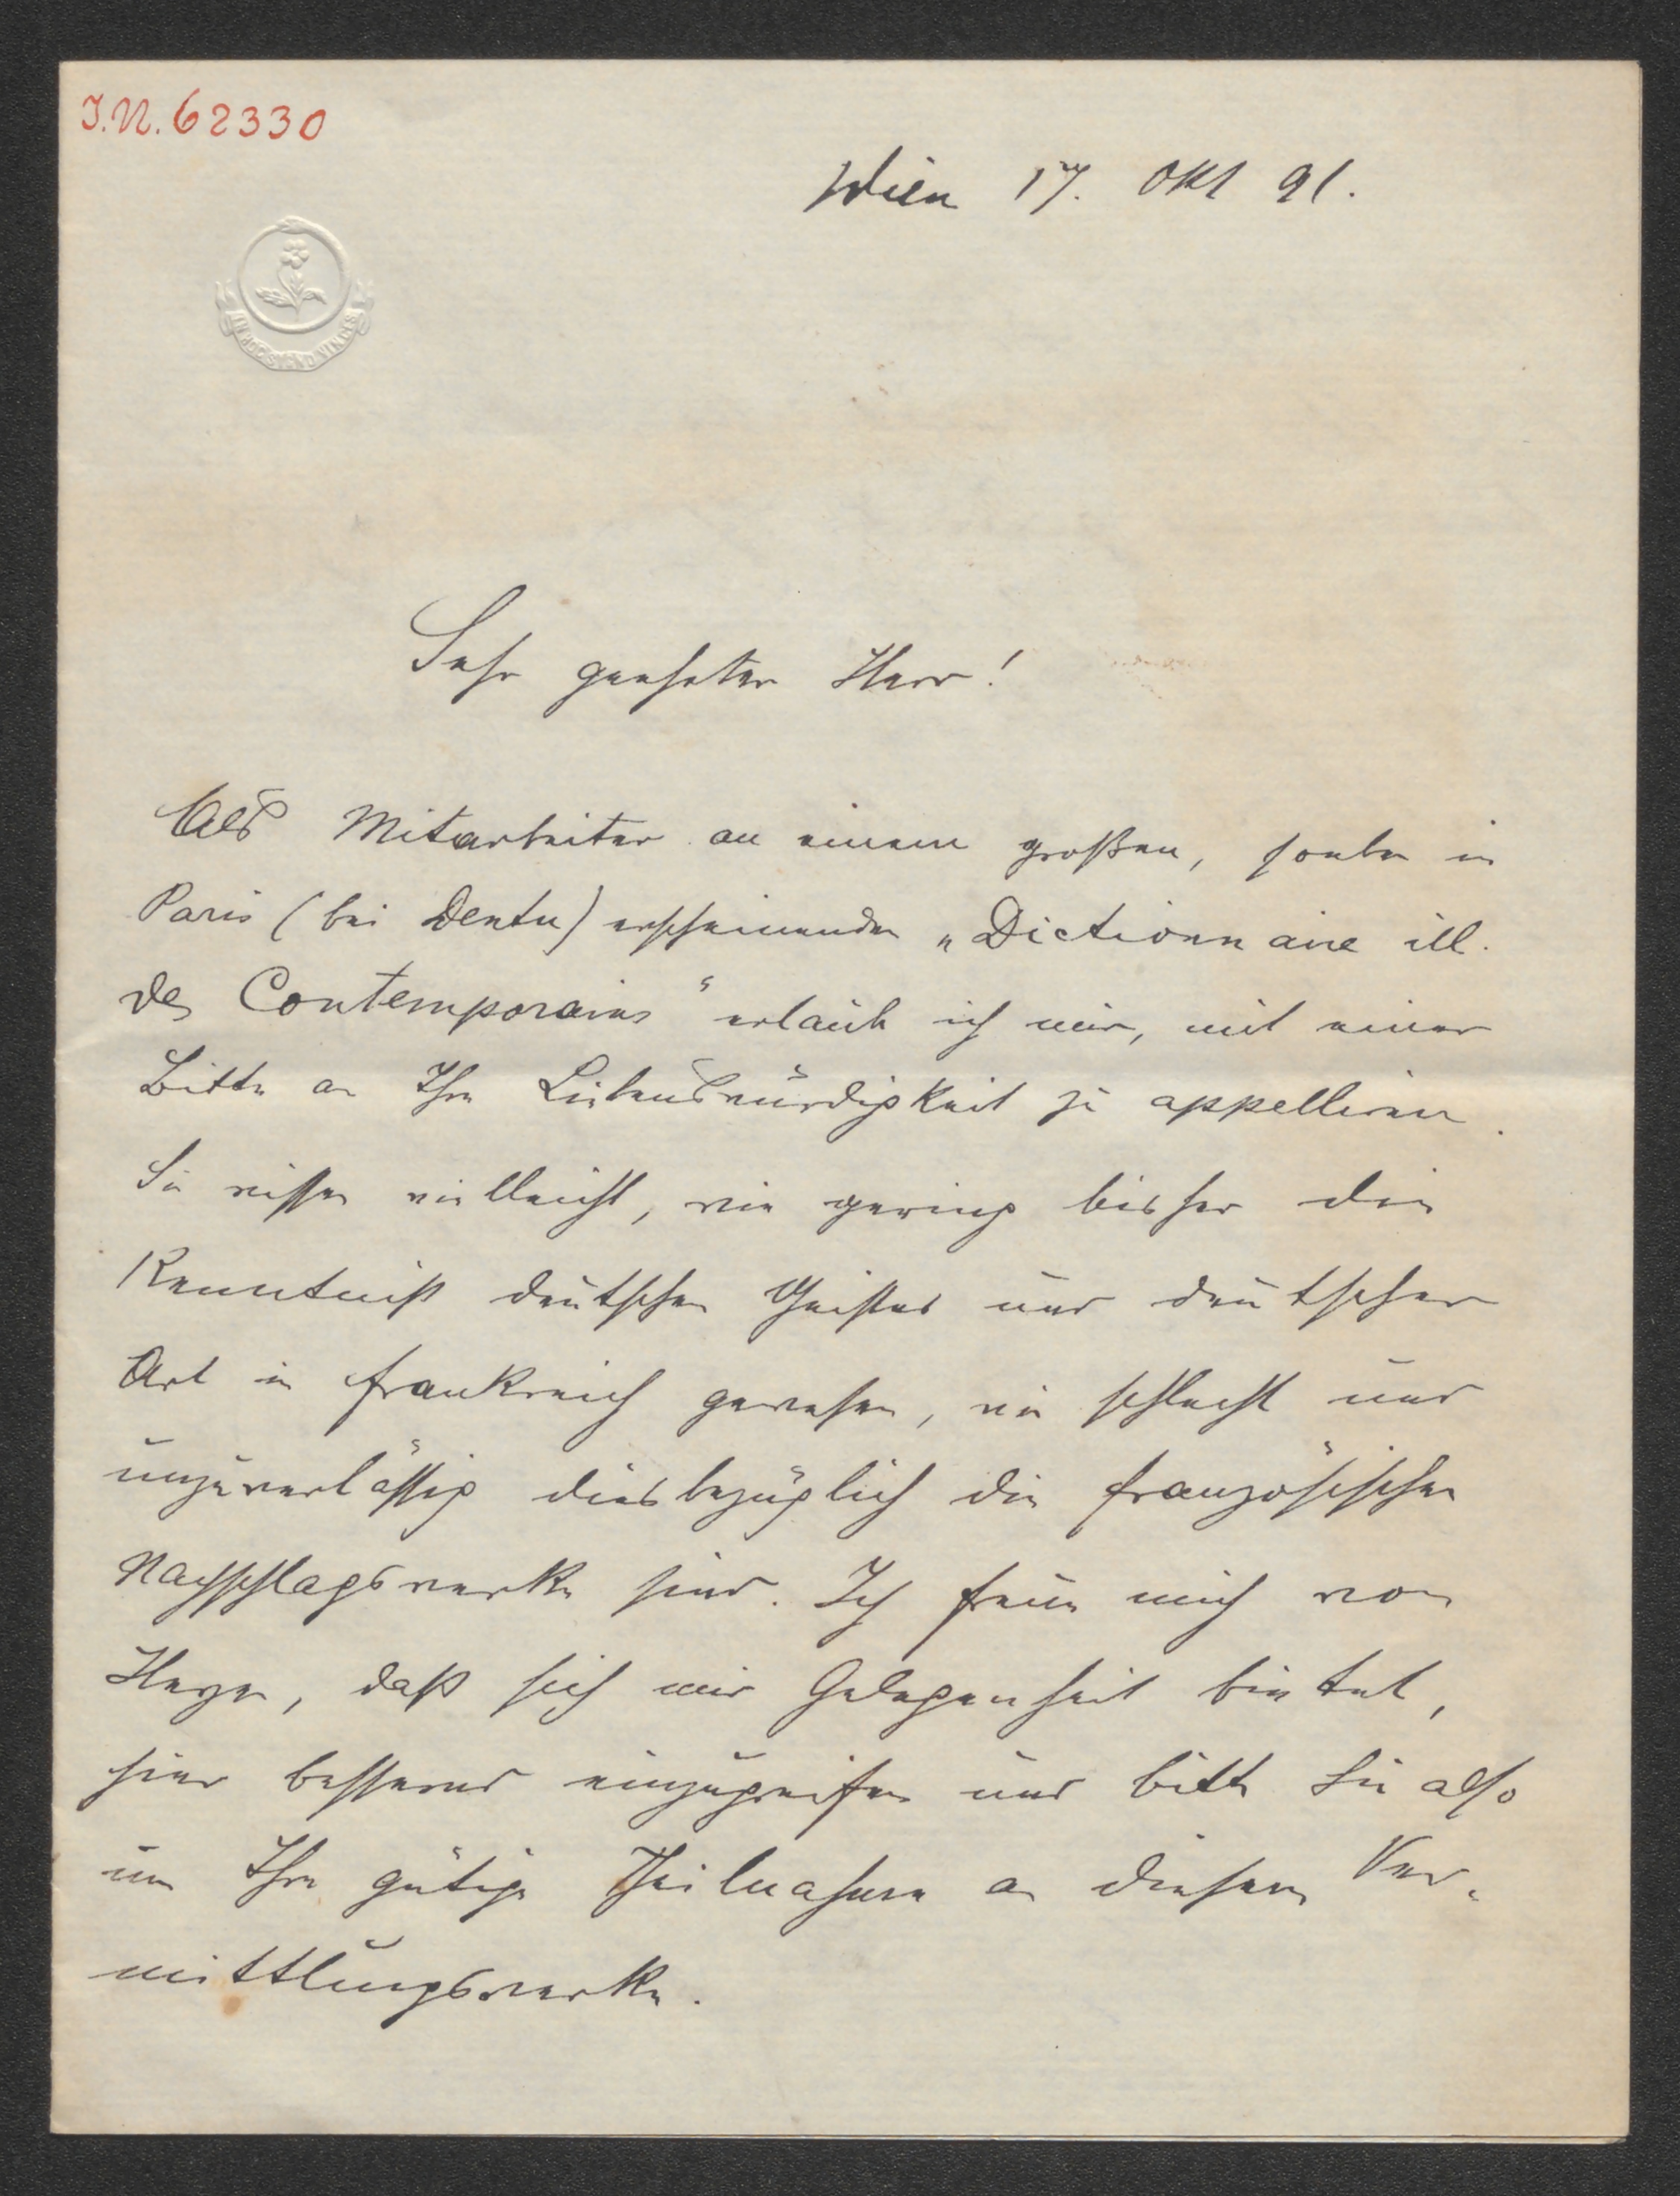 I.N. 62330
Wien 17. Okt 91.
IN HOC SIGNO VINCES
Sehr geehrter Herr!
Als Mitarbeiter an einem großen, soeben in
Paris (bei Dentu) erscheinenden „Dictionnaire ill.
des Contemporains" erlaube ich mir, mit einer
Bitte an Ihre Liebenswürdigkeit zu appelliren.
Sie wissen vielleicht, wie gering bisher die
Kenntniß deutschen Geistes und deutscher
Art in Frankreich gewesen, wie schlecht und
unzuverlässig diesbezüglich die französischen
Nachschlagswerke sind. Ich freue mich von
Herzen, daß sich mir Gelegenheit bietet,
hier bessernd einzugreifen und bitte Sie also
um Ihre gütige Theilnahme an diesem Ver-
mittlungswerke.